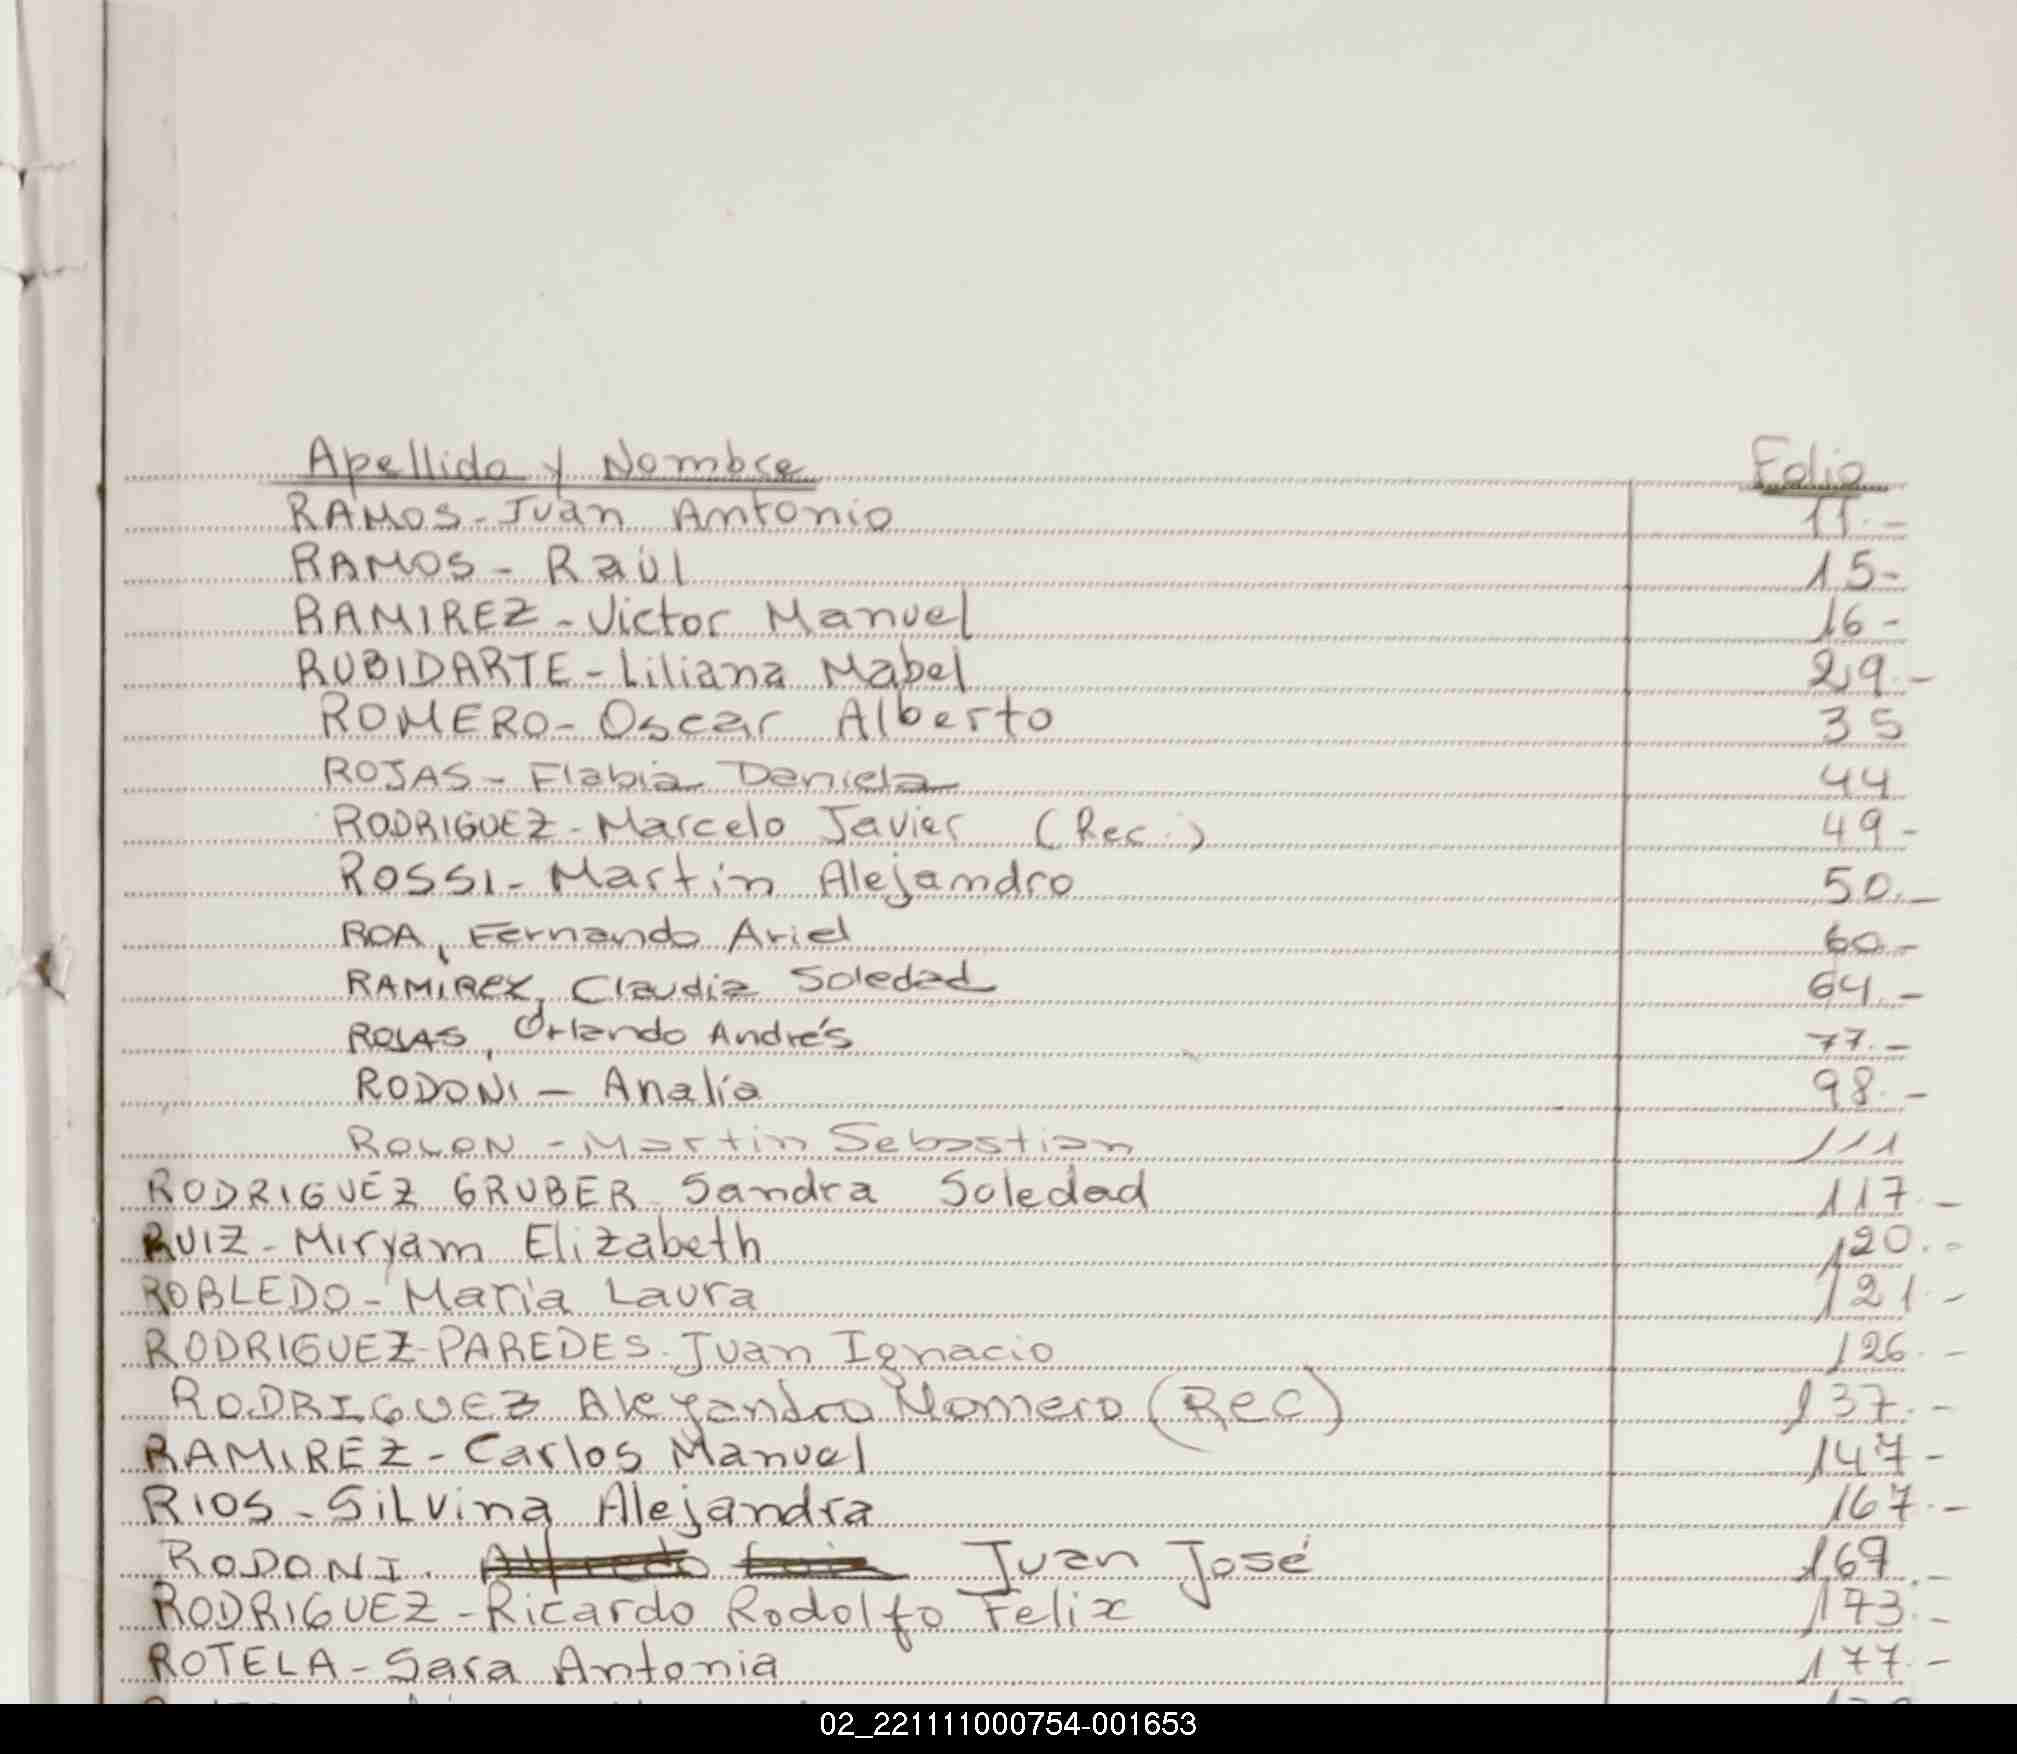 Apellido y Nombre Folio
RAMOS - Juan Antonio 11.-
RAMOS - Raúl 15-
RAMIREZ - Victor Manuel 16-
RUBIDARTE - Liliana Mabel 29.-
ROMERO - Oscar Alberto 35
ROJAS - Flabia Daniela 44
RODRIGUEZ - Marcelo Javier (Rec.) 49-
ROSSI - Martin Alejandro 50.-
ROA, Fernando Ariel 60.-
RAMIREZ, Claudia Soledad 64.-
Orlando Andrés 77.-
RODONI - Analía 98.-
ROLON - Martin Sebastian 111
RODRIGUEZ GRUBER Sandra Soledad 117.-
RUIZ - Miryam Elizabeth 120.-
ROBLEDO - María Laura 121.-
RODRIGUEZ-PAREDES. Juan Ignacio 126.-
RODRIGUEZ Aleyandro (Rec) 137.-
RAMIREZ - Carlos Manuel 147-
RIOS - Silvina Alejandra 167.-
RODONI. Juan José 169.-
RODRIGUEZ - Ricardo Rodolfo Felix 173.-
ROTELA - Sara Antonia 177.-
02_221111000754-001653